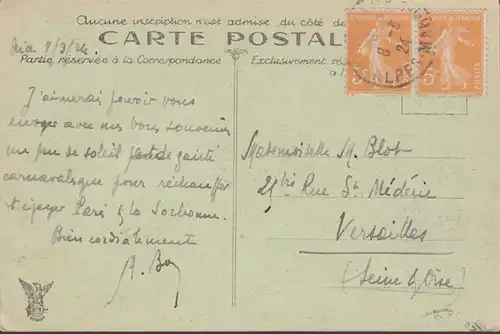 Aucune inscription n'est admise du côté de
CARTE POSTAL
Partie réservée à la Correspondance
Exclusivement
8/3/24
J'aimerais pouvoir vous
envoyer avec mes bons souvenirs
un peu de soleil et de gaité
carnavalesque pour réchauffer
et égayer Paris & la Sorbonne.
Bien cordialement
Mademoiselle M. Blot
25bis Rue St Médéric
Versailles
(Seine & Oise)
5c
POSTES
ALPES MAR